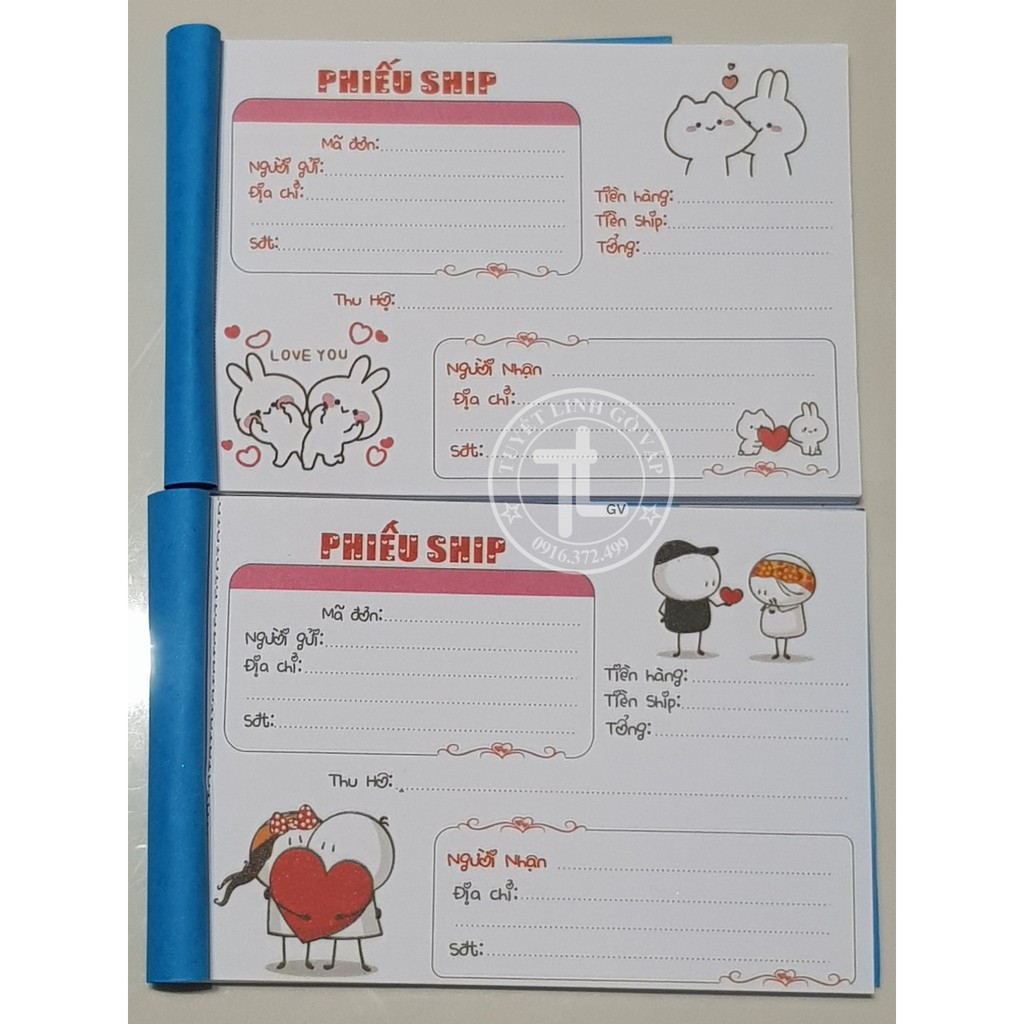 PHIẾU SHIP
Mã đơn:
Người gửi:
Địa chỉ:
Sđt:
Tiền hàng:
Tiền Ship:
Tổng:
Thu Hộ:
LOVE YOU
Người Nhận
Địa chỉ:
Sđt:
TUYẾT LINH GÒ VẤP
TL
0916.372.499
GV
PHIẾU SHIP
Mã đơn:
Người gửi:
Địa chỉ:
Sđt:
Tiền hàng:
Tiền Ship:
Tổng:
Thu Hộ:
Người Nhận
Địa chỉ:
Sđt: